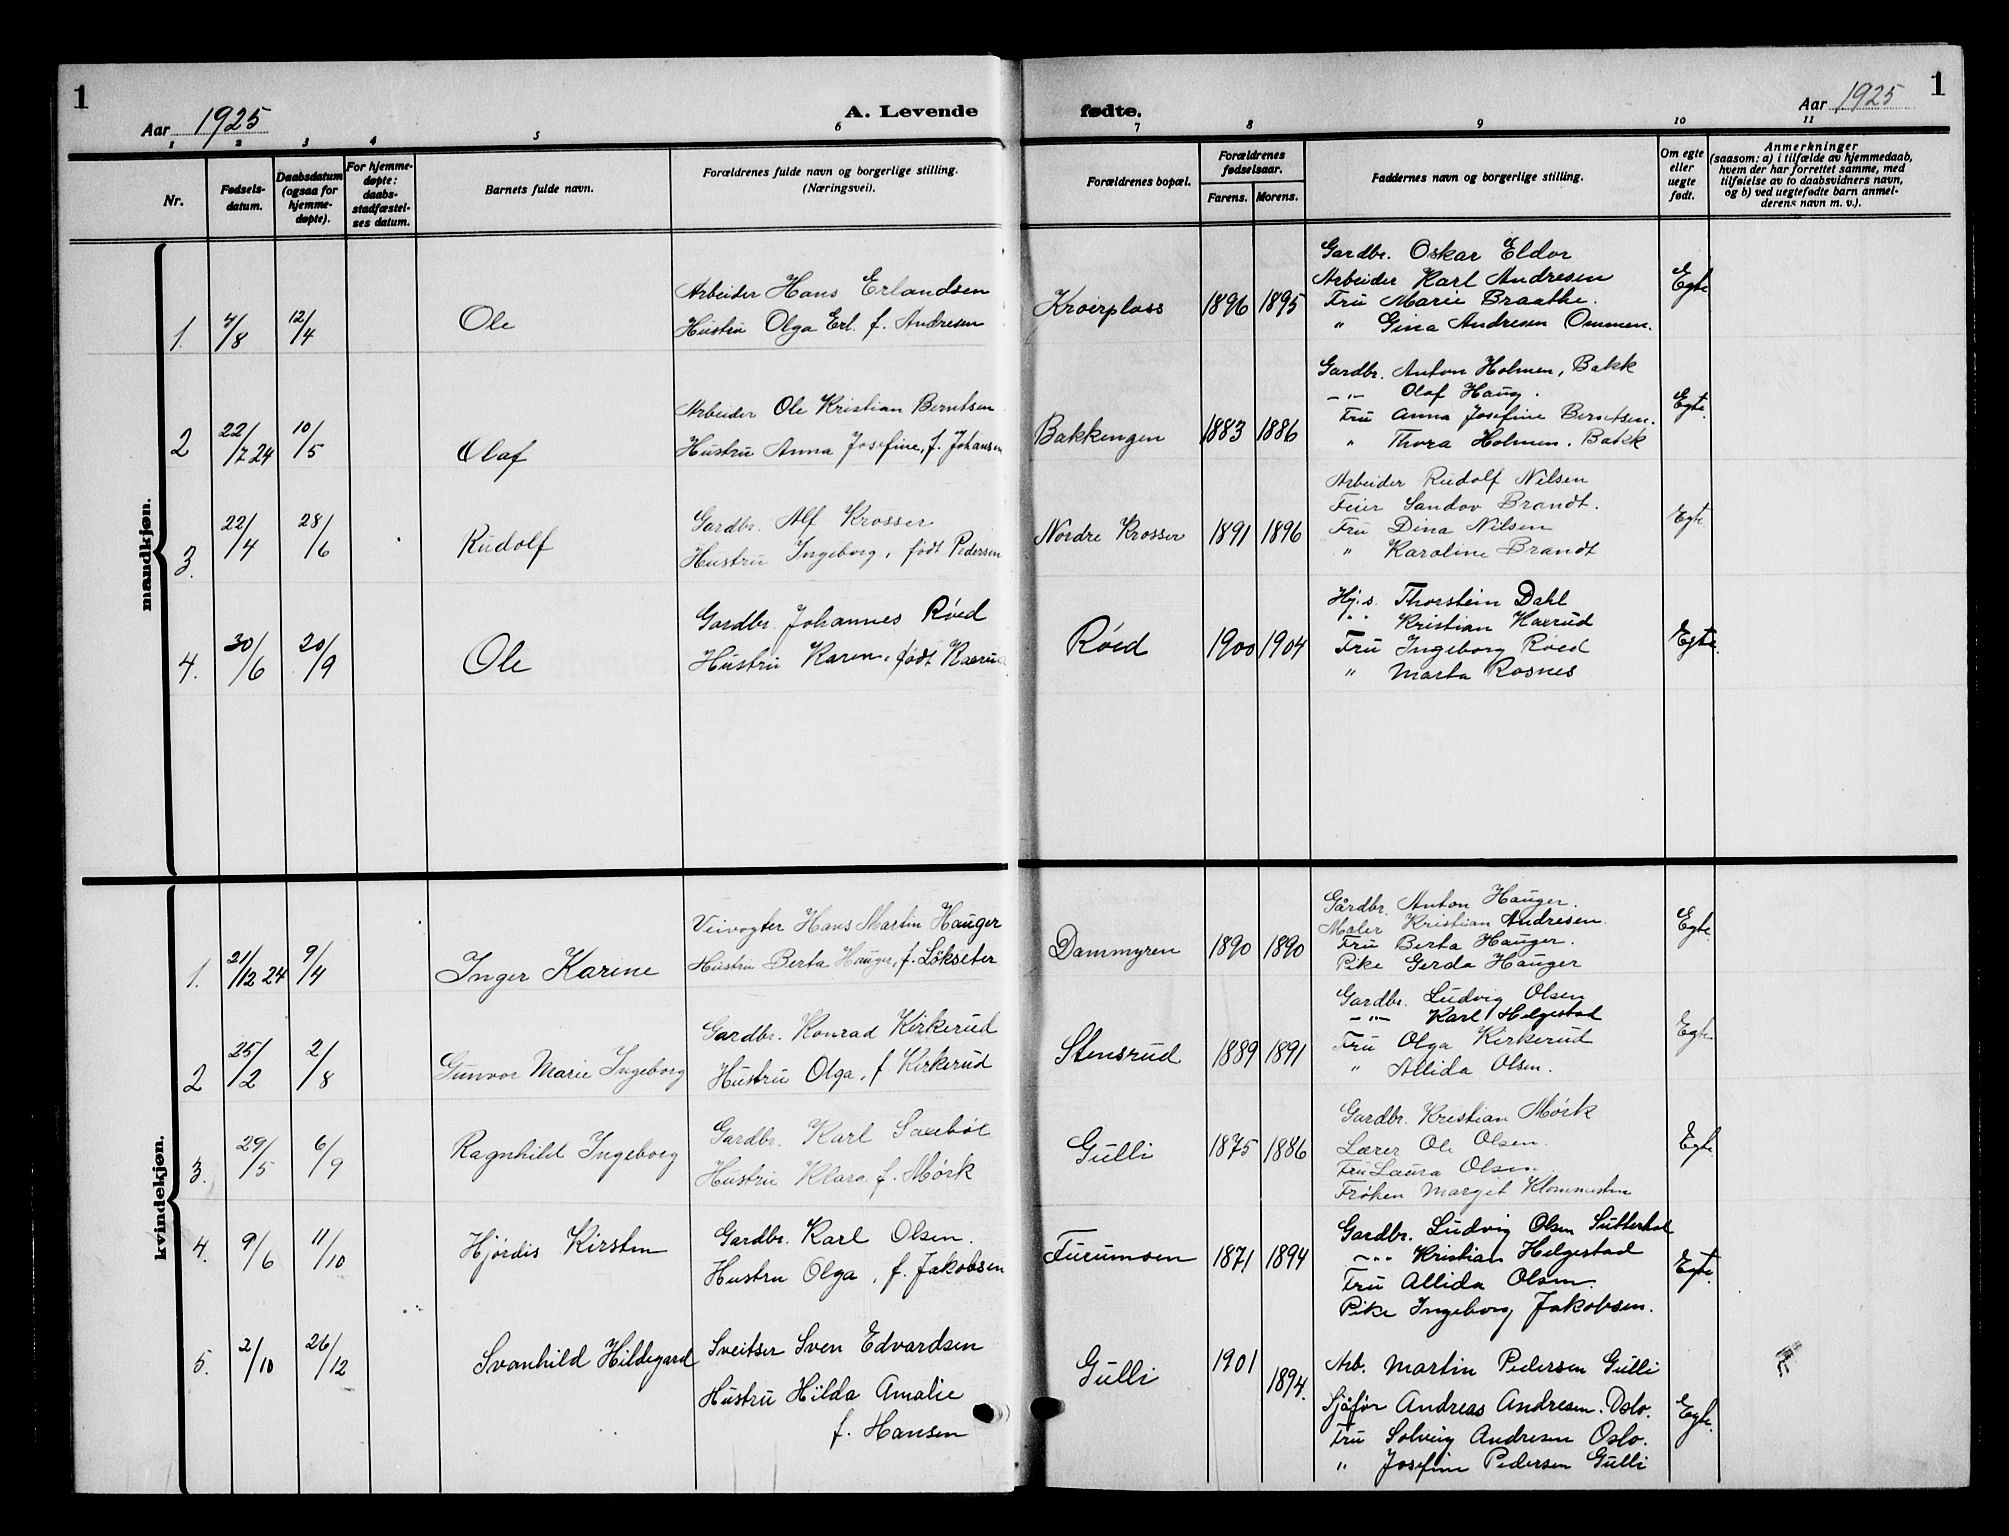 1
Aar 1925
A. Levende
fødte.
Aar 1925
1
1 2 3 4 5 6 7 8 9 10 11
Nr.
Fødsels-
datum.
Daabsdatum
(ogsaa for
hjemme-
døpte).
For hjemme-
døpte:
daabs
stadfæstel-
ses datum.
Barnets fulde navn.
Forældrenes fulde navn og borgerlige stilling.
(Næringsvei).
Forældrenes bopæl.
Forældrenes
fødselsaar.
Farens. Morens.
Faddernes navn og borgerlige stilling.
Om egte
eller
uegte
født.
Anmerkninger
(saasom: a) i tilfælde av hjemmedaab,
hvem der har forrettet samme, med
tilføielse av to daabsvidners navn,
og b) ved uegtefødte barn anmel-
derens navn m. v.).
mandkjøn.
1. 7/8 12/4 Ole
Arbeider Hans Erlandsen
Hustru Olga Erl. f. Andresen
Kroerplass 1896 1895
Gardbr. Oskar Eldor
Arbeider Karl Andresen
Fru Marie Braathe.
" Gina Andresen Ommen.
Egte
2 22/7 24 10/5 Olaf
Arbeider Ole Kristian Berntsen
Hustru Anna Josefine, f. Johansen
Bakkengen 1883 1886
Gardbr. Anton Holmen, Bakk
-"- Olaf Haug.
Fru Anna Josefine Berntsen.
" Thora Holmen. Bakk
Egte.
3. 22/4 28/6 Rudolf
Gardbr. Alf Krosser
Hustru Ingeborg, født Pedersen
Nordre Krosser 1891 1896
Arbeider Rudolf Nilsen
Feier Sandov Brandt.
Fru Dina Nilsen
" Karoline Brandt
Egte
4. 30/6 20/9 Ole
Gardbr. Johannes Röed
Hustru Karen, født Kaxrud
Röed 1900 1904
Hj.s. Thorstein Dahl
"." Kristian Kaxrud
Fru Ingeborg Röed
" Marta Rosnes
Egte.
kvindekjøn.
1. 21/12 24 9/4 Inger Karine
Veivogter Hans Martin Hauger
Hustru Berta Hauger, f. Lökseter
Dammyren 1890 1890
Gårdbr. Anton Hauger.
Maler Kristian Andresen.
Fru Berta Hauger.
Pike Gerda Hauger
Egte.
2 25/2 2/8 Gunvor Marie Ingeborg
Gardbr. Konrad Kirkerud
Hustru Olga, f. Kirkerud
Stensrud 1889 1891
Gardbr. Ludvig Olsen
-"- Karl Helgestad
Fru Olga Kirkerud
" Allida Olsen.
Egte.
3. 29/5 6/9 Ragnhild Ingeborg
Gardbr. Karl Saxeböl
Hustru Klara f. Mörk
Gulli 1875 1886
Gardbr. Kristian Mörk
Lærer Ole Olsen.
Fru Laura Olsen.
Fröken Margit Klommesten
Egte.
4. 9/6 11/10 Hjördis Kirsten
Gardbr. Karl Olsen.
Hustru Olga, f. Jakobsen
Furumoen 1871 1894
Gardbr. Ludvig Olsen Sutterhol
-"- Kristian Helgestad
Fru Allida Olsen.
Pike Ingeborg Jakobsen.
Egte.
5. 2/10 26/12 Svanhild Hildegard
Sveitser Sven Edvardsen
Hustru Hilda Amalie
f. Hansen
Gulli 1901 1894.
Arb. Martin Pedersen Gulli
Sjåfør Andreas Andresen. Oslo.
Fru Solveig Andresen Oslo.
" Josefine Pedersen Gulli
Egte.